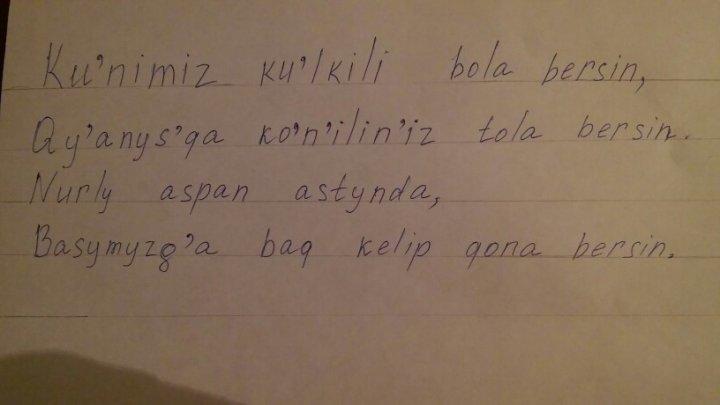 Ku'nimiz ku'lkili bola bersin,
Qy'anys'qa ko'n'ilin'iz tola bersin.
Nurly aspan astynda,
Basymyzg'a baq kelip qona bersin.